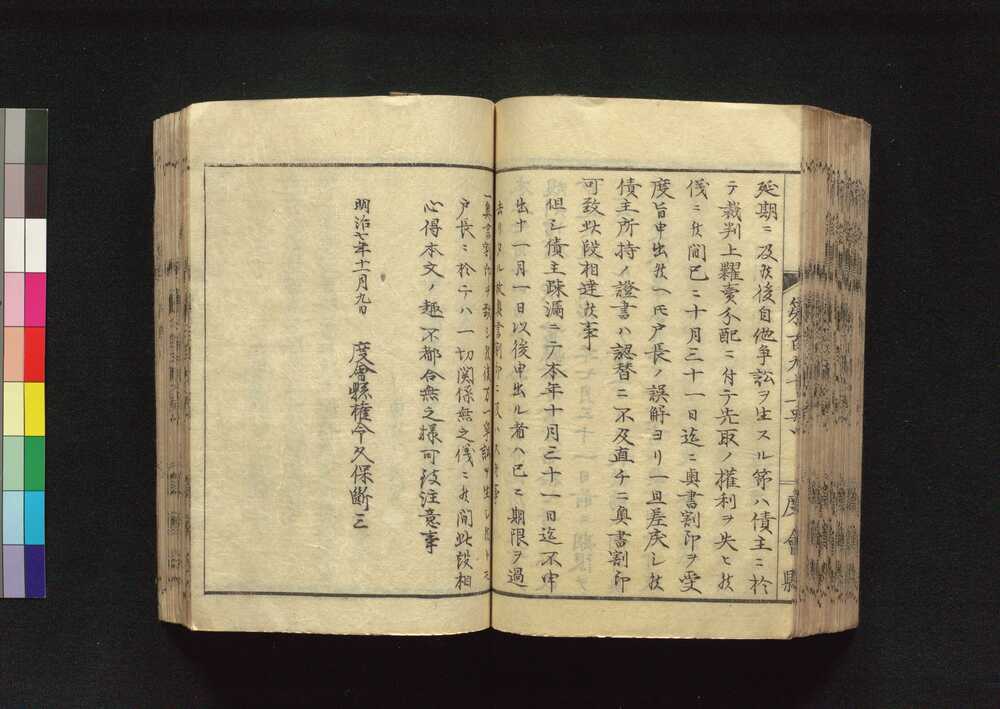 第百九十一号 度會縣
延期ニ及候後自他争訟ヲ生スル節ハ債主ニ於
テ裁判上糶賣分配ニ付テ先取ノ權利ヲ失ヒ候
儀ニ候間已ニ十月三十一日迄ニ奥書割印ヲ受
度旨申出候ヘ氏戸長ノ誤解ヨリ一旦差戻シ候
債主所持ノ證書ハ認替ニ不及直チニ奥書割印
可致此段相達候事
但シ債主疎漏ニテ本年十月三十一日迄不申
出十一月一日以後申出ル者ハ已ニ期限ヲ過
戸長ニ於テハ一切関係無之儀ニ候間此段相
心得本文ノ趣不都合無之様可致注意事
明治七年十一月九日
度會縣權令久保斷三